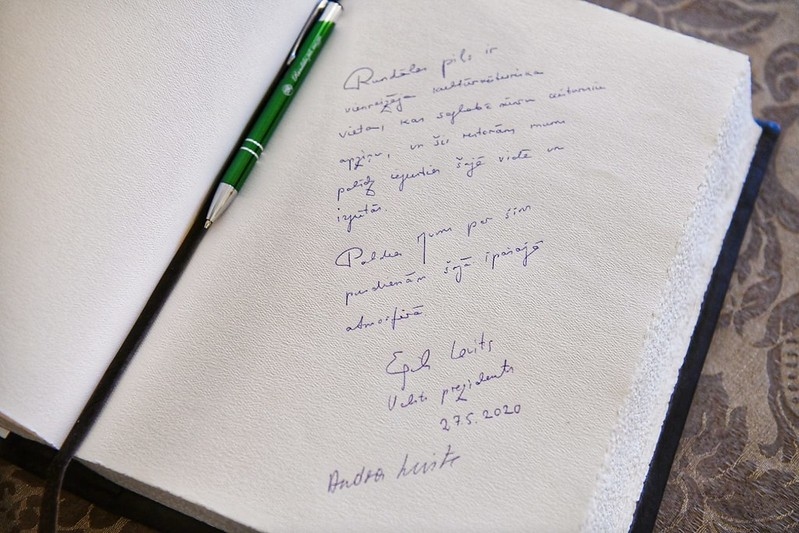 Rundāles pils ir
vienreizēja kultūrvēsturiska
vieta, kas saglabā mūsu
apziņu, un šis restorāns mums
palīdz iejusties šajā vidē un
izjūtās.
Paldies Jums par šīm
pusdienām šajā īpašajā
atmosfērā.
Egils Levits
Valsts prezidents
27.5.2020
Andra Levite